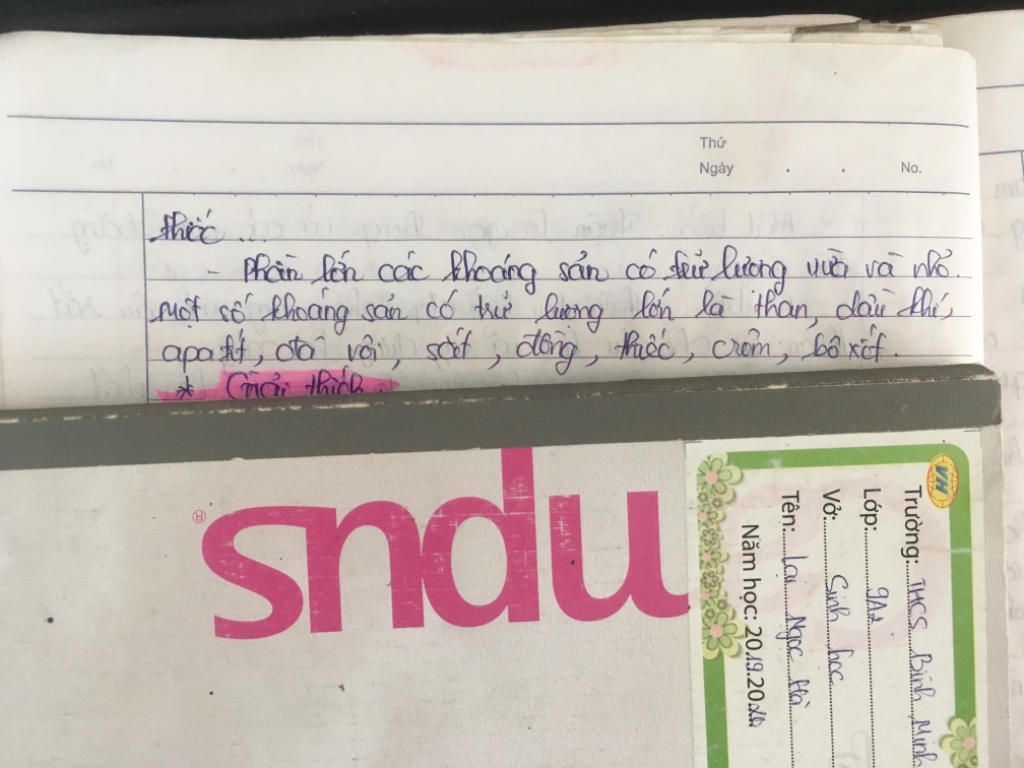 Thứ
Ngày . . No.
thiếc ...
- Phần lớn các khoáng sản có trữ lượng vừa và nhỏ.
một số khoáng sản có trữ lượng lớn là than, dầu khí,
apatít, đá vôi, sắt, đồng, thiếc, crôm, bôxít.
* Giải thích
sndu
VH
Trường: THCS Bình Minh
Lớp: 9A2
Vở: Sinh học
Tên: Lại Ngọc Hà
Năm học: 2019.2020